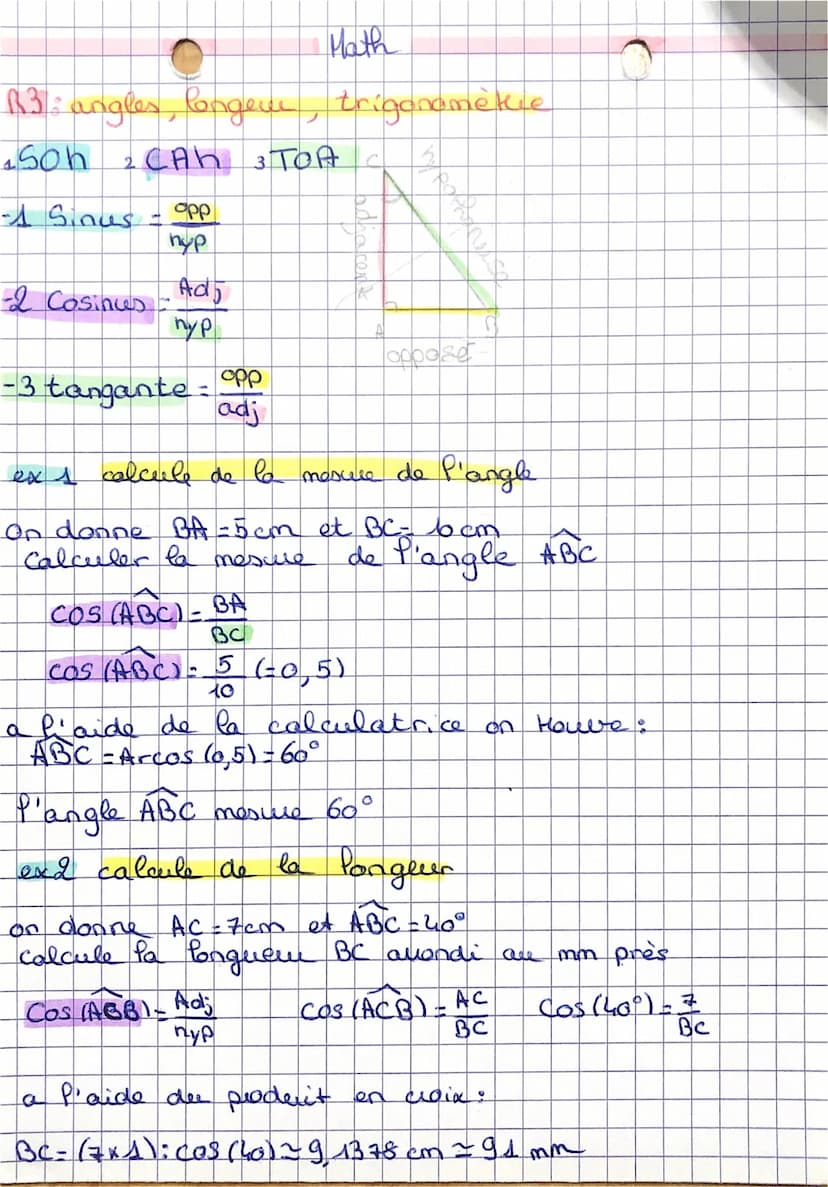 Math
R3: angles, longeur, trigonomètrie
1 SOh 2 CAh 3 TOA
C hypothenuse
-1 Sinus = opp
hyp
adjacent
-2 Cosinus = Adj
hyp
A
opposé
-3 tangante = opp
adj
ex 1 calcule de la mesure de l'angle
on donne BA = 5 cm et BC = 10 cm
Calculer la mesure de l'angle ABC
COS (ABC) = BA
BC
cos (ABC) = 5 (=0,5)
10
a l'aide de la calculatrice on trouve :
ABC = Arcos (0,5) = 60°
l'angle ABC mesure 60°
ex2 calcule de la longeur
on donne AC = 7cm et ABC = 40°
Calcule la longueur BC arrondi au mm près
Cos (ACB) = Adj cos (ACB) = AC Cos (40°) = 7
hyp BC BC
a l'aide du produit en croix :
BC = (7x1) : cos (40) ≃ 9,1378 cm ≃ 91 mm